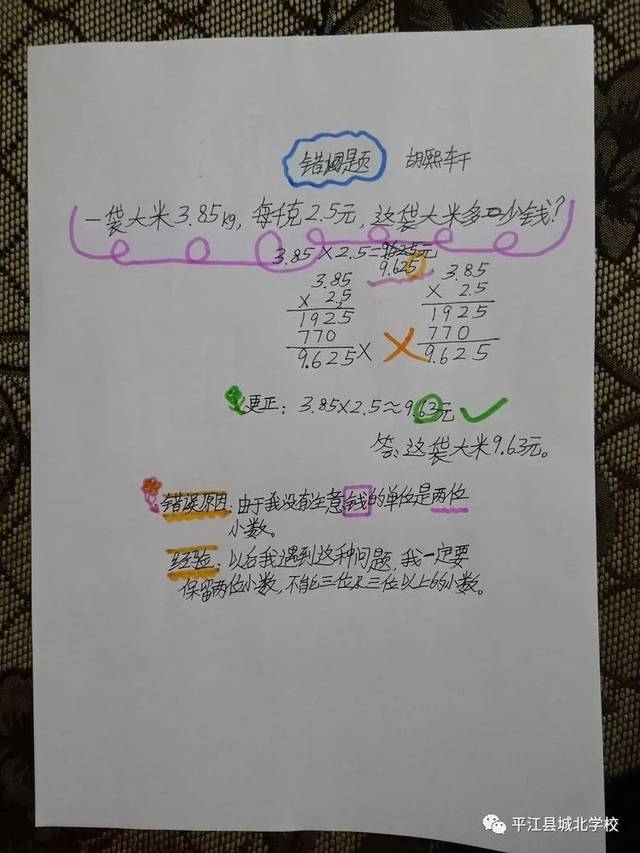 错题 胡熙轩
一袋大米3.85kg,每千克2.5元,这袋大米多少钱?
3.85×2.5=9.625元
9.625
3.85 3.85
× 2.5 × 2.5
1925 1925
770 770
9.625× × 9.625
更正:3.85×2.5≈9.63元 ✓
答:这袋大米9.63元。
错误原因:由于我没有注意钱的单位是两位
小数。
经验:以后我遇到这种问题,我一定要
保留两位小数,不能三位及三位以上的小数。
平江县城北学校